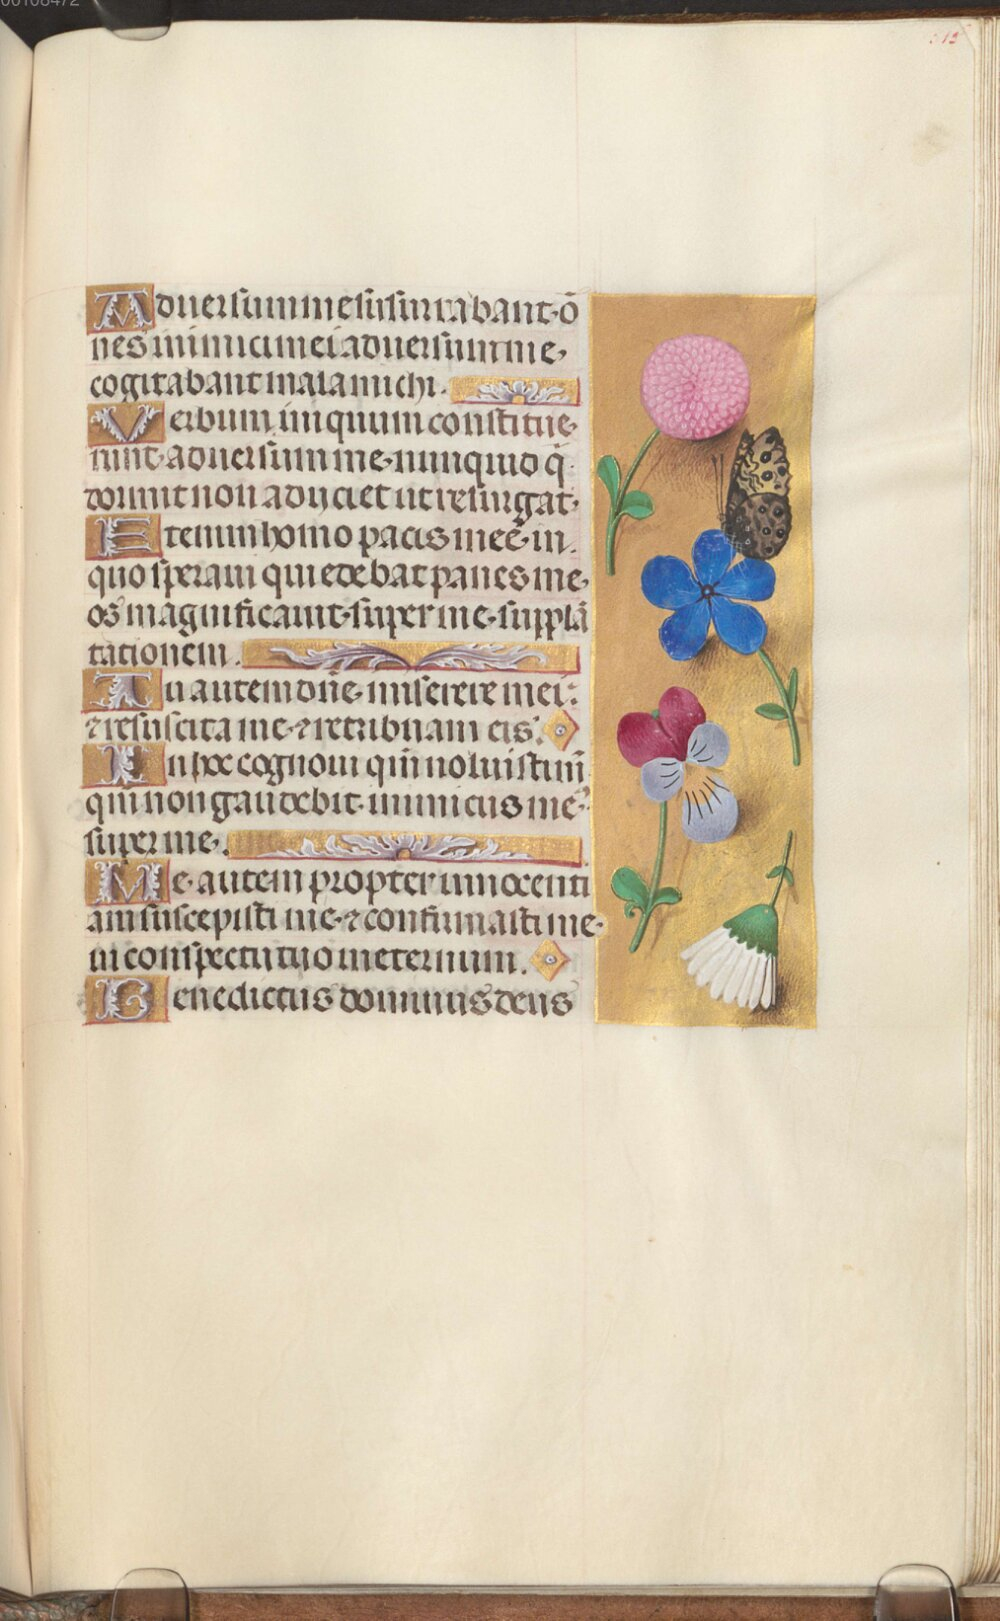 00108472
313
Aduersum me susurrabant·ō
nes inimici mei aduersum me·
cogitabant mala michi.
Verbum iniquum constitue·
runt·aduersum me·nunquid q̄
dormit non adijciet ut resurgat·
Etenim homo pacis meē·in.
quo speraui qui edebat panes me·
os magnificauit·super me·supplā
tationem.
Tu autem dn̄e·miserere mei:
⁊ resuscita me·⁊ retribuam eis:
In hoc cognoui qm̄ noluisti m̄
qm̄ non gaudebit·inimicus me⁹
super me.
Me·autem propter innocenti
am suscepisti me·⁊ confirmasti me·
in conspectu tuo in eternum.
Benedictus dominus deus